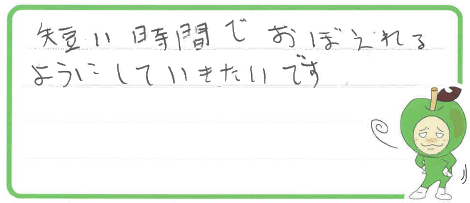 短い時間でおぼえれる
ようにしていきたいです